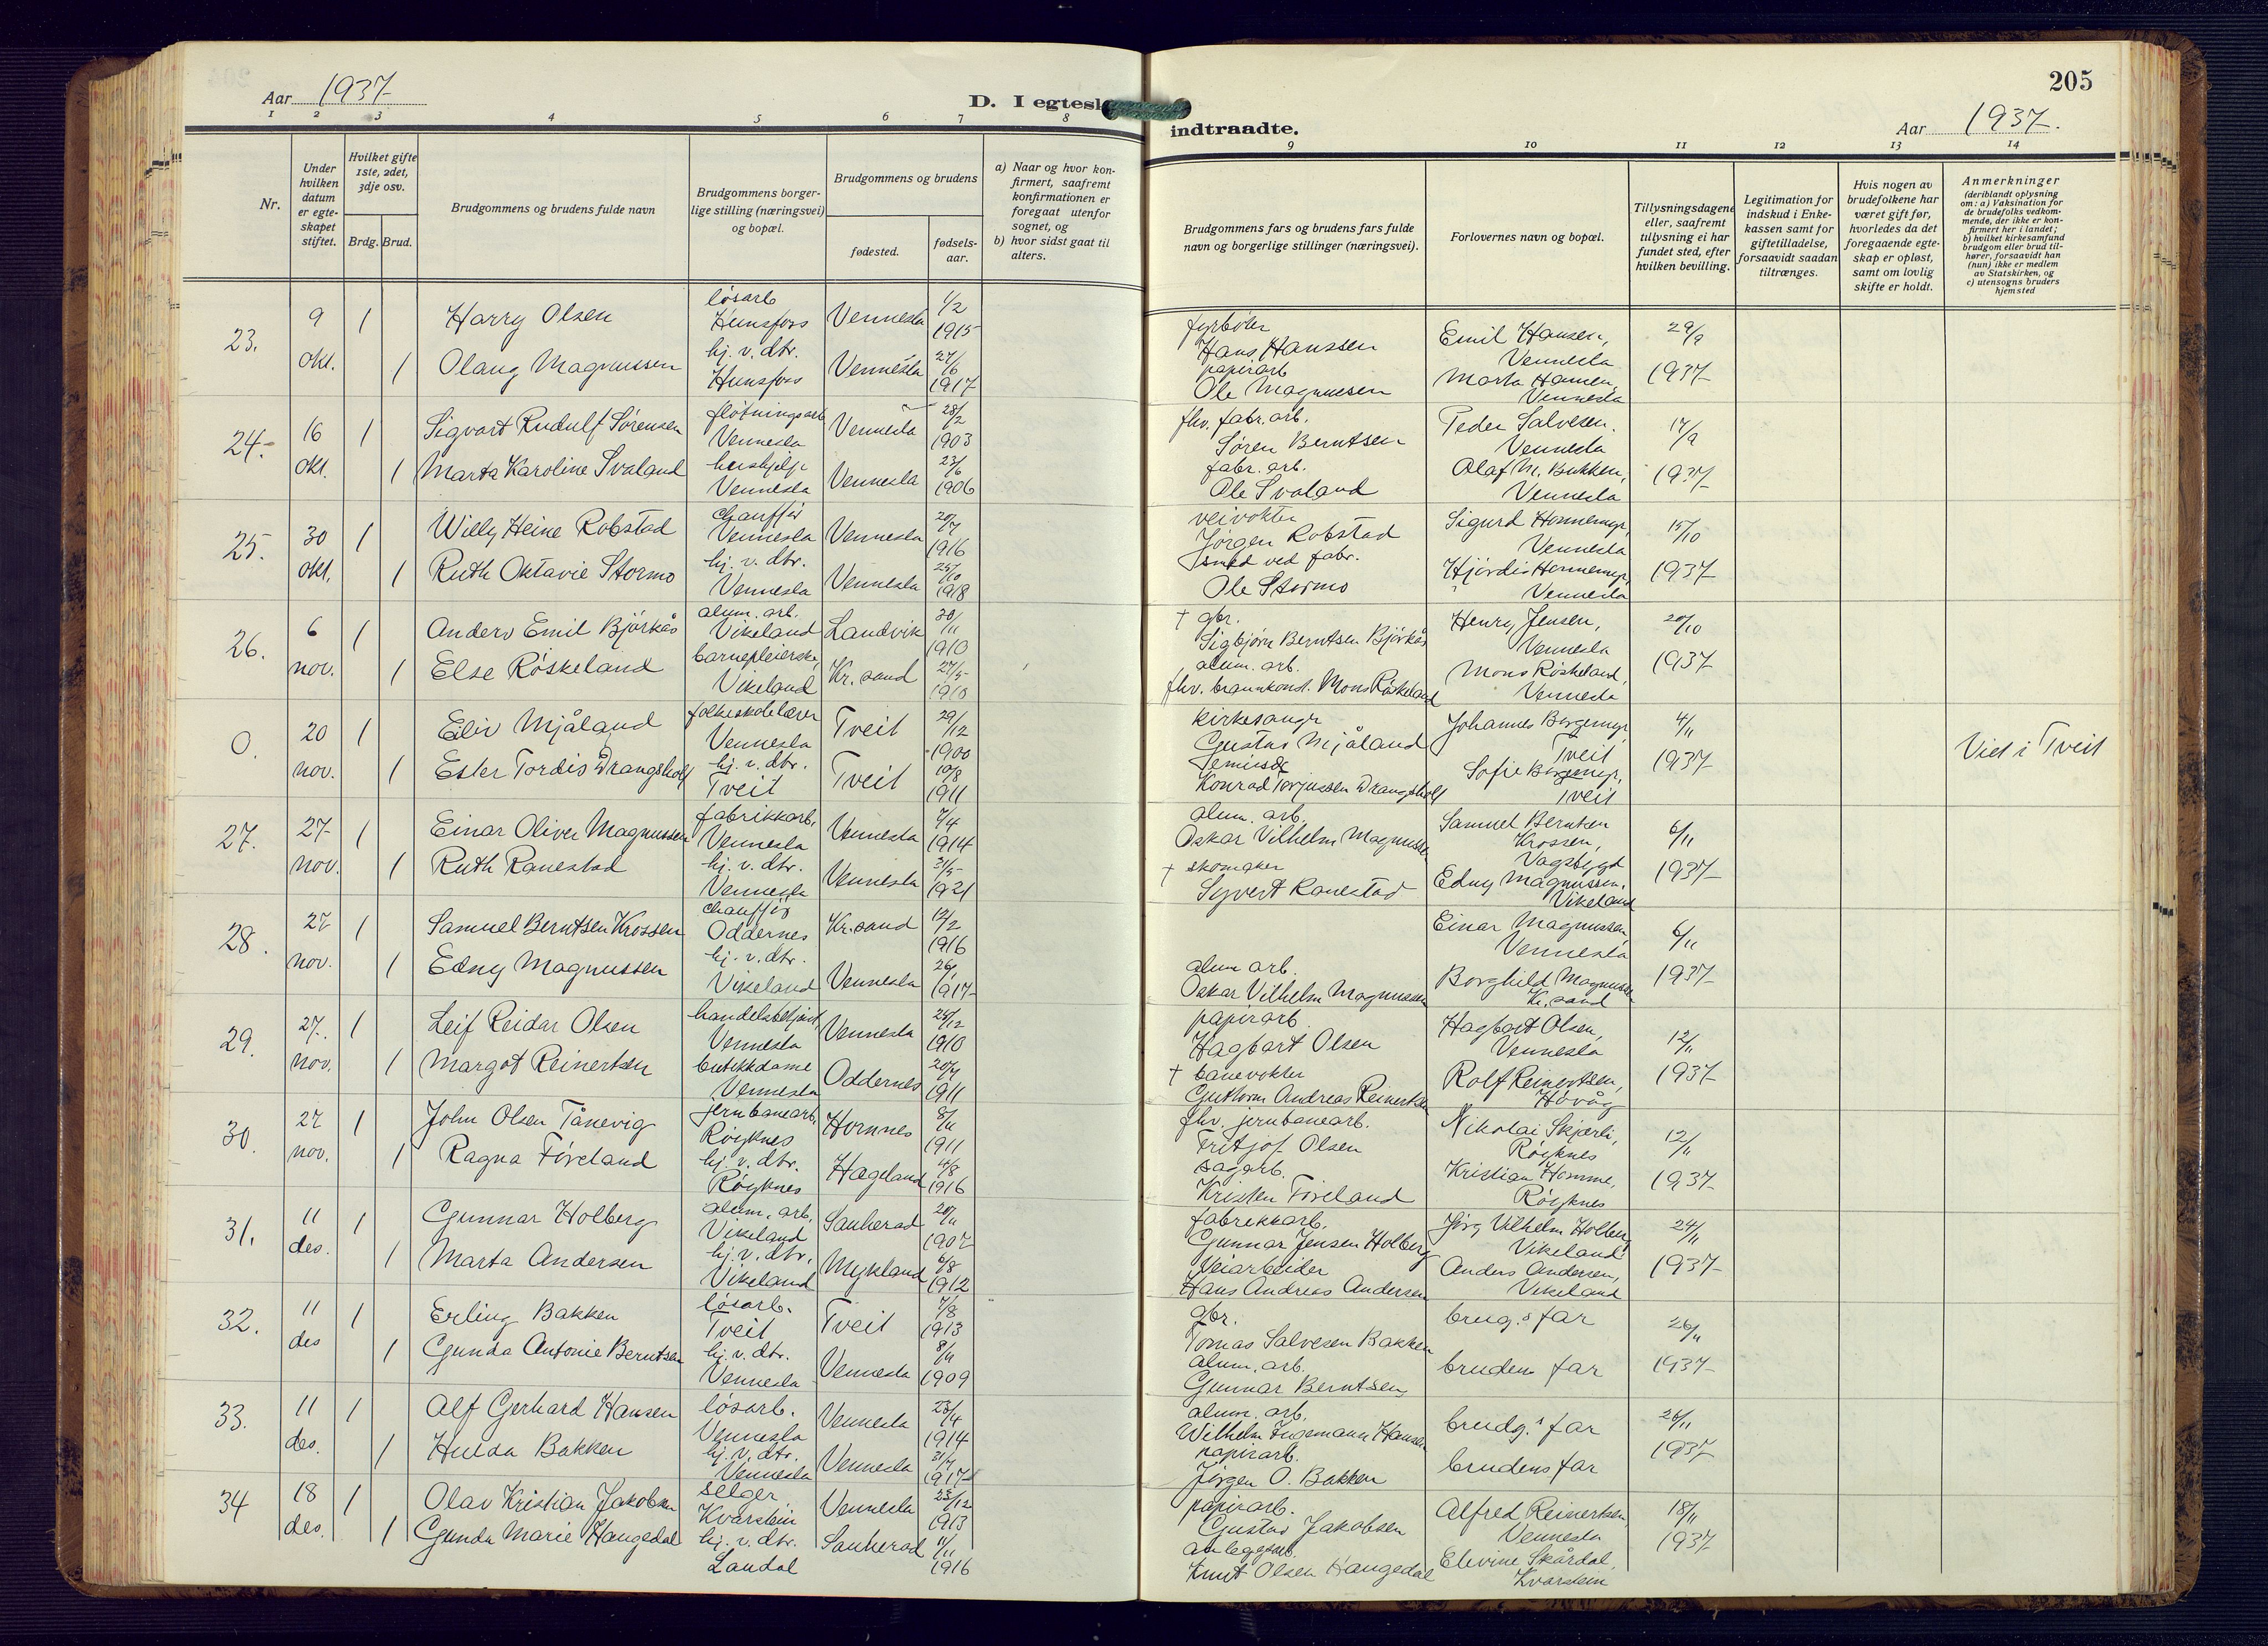 Aar 1937
D. I egtesk
1 2 3 4 5 6 7 8
Nr.
Under hvilken datum er egteskapet stiftet.
Hvilket gifte 1ste, 2det, 3dje osv.
Brdg. Brud.
Brudgommens og brudens fulde navn
Brudgommens borgerlige stilling (næringsvei) og bopæl.
Brudgommens og brudens
fødested.
fødselsaar.
a) Naar og hvor konfirmert, saafremt konfirmationen er foregaat utenfor sognet, og
b) hvor sidst gaat til alters.
205
indtraadte.
Aar 1937.
9 10 11 12 13 14
Brudgommens fars og brudens fars fulde navn og borgerlige stillinger (næringsvei).
Forlovernes navn og bopæl.
Tillysningsdagene eller, saafremt tillysning ei har fundet sted, efter hvilken bevilling.
Legitimation for indskud i Enkekassen samt for giftetilladelse, forsaavidt saadan tiltrænges.
Hvis nogen av brudefolkene har været gift før, hvorledes da det foregaaende egteskap er opløst, samt om lovlig skifte er holdt.
Anmerkninger
(deriblandt oplysning om: a) Vaksination for de brudefolks vedkommende, der ikke er konfirmert her i landet; b) hvilket kirkesamfund brudgom eller brud tilhører, forsaavidt han (hun) ikke er medlem av Statskirken, og c) utensogns bruders hjemsted
23. 9 okt. 1 Harry Olsen løsarb Hunsfoss Vennesla 1/2 1915 fyrbøter Hans Hanssen Emil Hansen, Vennesla 29/9
1 Olaug Magnussen hj. v. dtr. Hunsfoss Vennesla 27/6 1917 papirarb Ole Magnussen Marta Hansen, Vennesla 1937
24. 16 okt. 1 Sigvart Rudulf Sørensen fløtningsarb Vennesla Vennesla 28/2 1903 fhv. fabr. arb. Søren Berntsen Peder Salvesen. Vennesla 17/9
1 Marta Karoline Svaland hushjelp Vennesla Vennesla 23/6 1906 fabr. arb. Ole Svaland Olaf M. Bakken, Vennesla 1937
25. 30 okt. 1 Willy Heine Robstad chauffør Vennesla Vennesla 20/7 1916 veivokter Jørgen Robstad Sigurd Honnemyr, Vennesla 15/10
1 Ruth Oktavie Stormo hj. v. dtr. Vennesla Vennesla 25/10 1918 smed ved fabr. Ole Stormo Hjørdis Honnemyr, Vennesla 1937
26. 6 nov. 1 Anders Emil Bjørkås alum. arb. Vikeland Landvik 30/11 1910 † gbr. Sigbjørn Berntsen Bjørkås Henry Jensen, Vennesla 20/10
1 Else Røskeland barnepleierske, Vikeland Kr. sand 27/5 1910 alum. arb. fhv. brannkonst. Mons Røskeland Mons Røskeland, Vennesla 1937
0. 20 nov. 1 Eiliv Mjåland folkeskolelærer Vennesla Tveit 29/12 1900 kirkesangr Gustav Mjåland Johannes Borgemyr Tveit 4/11 Viet i Tveit
1 Ester Tordis Drangsholt hj. v. dtr. Tveit Tveit 10/8 1911 Konrad Torjussen Drangsholt Sofie Borgemyr, Tveit 1937
27. 27 nov. 1 Einar Oliver Magnussen fabrikkarb. Vennesla Vennesla 7/4 1914 alum. arb. Oskar Vilhelm Magnussen Samuel Berntsen Krossen, Vågsbygd 6/11
1 Ruth Ranestad hj. v. dtr. Vennesla Vennesla 31/5 1921 † skomaker Syvert Ranestad Edny Magnussen, Vikeland 1937
28. 27 nov. 1 Samuel Berntsen Krossen chauffør Oddernes Kr. sand 12/2 1916 Einar Magnussen, Vennesla 6/11
1 Edny Magnussen hj. v. dtr. Vikeland Vennesla 26/1 1917 alum arb. Oskar Vilhelm Magnussen Borghild Magnussen Kr. sand 1937
29. 27. nov. 1 Leif Reidar Olsen handelsbetjent, Vennesla Vennesla 25/12 1910 papirarb Hagbart Olsen Hagbart Olsen, Vennesla 12/11
1 Margot Reinertsen butikkdame Vennesla Oddernes 20/7 1911 † banevokter Guthorm Andreas Reinertsen Rolf Reinertsen, Høvåg 1937
30. 27 nov. 1 John Olsen Tånevig jernbanearb, Røyknes Hornnes 8/11 1911 fhv. jernbanearb. Fritjof Olsen Nikolai Skjærli, Røyknes 12/11
1 Ragna Føreland hj. v. dtr. Røyknes Hægeland 4/8 1916 sagarb. Kristen Føreland Kristian Homme, Røyknes 1937
31. 11 des. 1 Gunnar Holberg alum. arb. Vikeland Sauherad 20/11 1907 fabrikkarb. Gunnar Jensen Holberg Jørg Vilhelm Holberg Vikeland 24/11
1 Marta Andersen hj. v. dtr. Vikeland Mykland 6/8 1912 Veiarbeider Hans Andreas Andersen Anders Andersen, Vikeland 1937
32. 11 des 1 Erling Bakken løsarb. Tveit Tveit 7/8 1913 gbr. Tomas Salvesen Bakken brug.s far 26/11
1 Gunda Antonie Berntsen hj. v. dtr. Vennesla Vennesla 8/11 1909 alum. arb. Gunnar Berntsen brudens far 1937
33. 11 des. 1 Alf Gerhard Hansen løsarb. Vennesla Vennesla 23/4 1914 alum. arb. Wilhelm Ingemann Hansen brudg.s far 26/11
1 Hulda Bakken hj. v. dtr. Vennesla Vennesla 31/7 1917 papirarb. Jørgen O. Bakken brudens far 1937
34 18 des. 1 Olav Kristian Jakobsen selger Kvarstein Vennesla 23/12 1913 papirarb. Gustav Jakobsen Alfred Reinertsen, Vennesla 18/11
1 Gunda Marie Haugedal hj. v. dtr. Laudal Sauherad 11/11 1916 anleggsarb. Knut Olsen Haugedal Elevine Skårdal, Kvarstein 1937